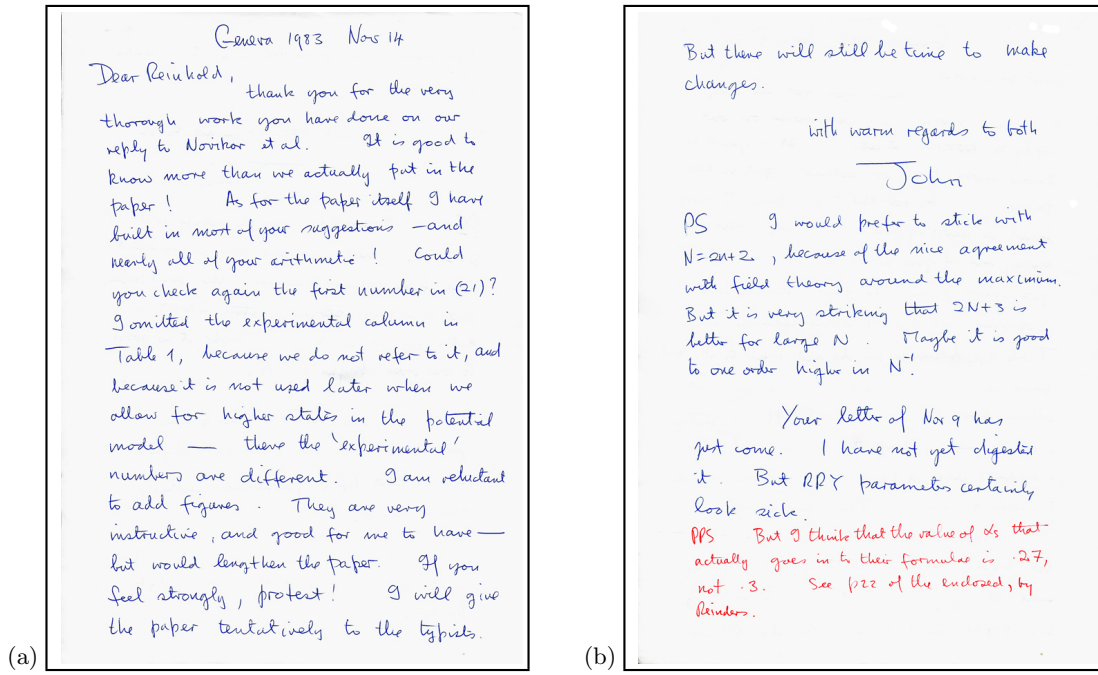 Geneva 1983 Nov 14
Dear Reinhold,
thank you for the very
thorough work you have done on our
reply to Novikov et al. It is good to
know more than we actually put in the
paper! As for the paper itself I have
built in most of your suggestions — and
nearly all of your arithmetic! Could
you check again the first number in (21)?
I omitted the experimental column in
Table 1, because we do not refer to it, and
because it is not used later when we
allow for higher states in the potential
model — there the 'experimental'
numbers are different. I am reluctant
to add figures. They are very
instructive, and good for me to have —
but would lengthen the paper. If you
feel strongly, protest! I will give
the paper tentatively to the typists.
(a)
But there will still be time to make
changes.
with warm regards to both
John
PS I would prefer to stick with
N=2n+2, because of the nice agreement
with field theory around the maximum.
But it is very striking that 2N+3 is
better for large N. Maybe it is good
to one order higher in N⁻¹!
Your letter of Nov 9 has
just come. I have not yet digested
it. But RRY parameters certainly
look sick.
PPS But I think that the value of αs that
actually goes in to their formulae is .27,
not .3. See p22 of the enclosed, by
Reinders.
(b)